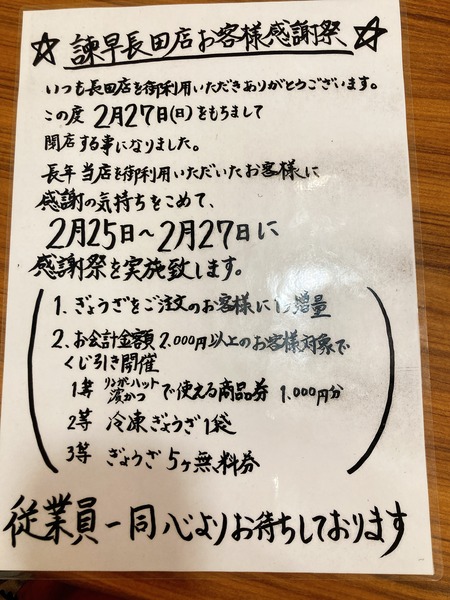 ☆ 諫早長田店お客様感謝祭 ☆
いつも長田店を御利用いただきありがとうございます。
この度 2月27日(日)をもちまして
閉店する事になりました。
長年 当店を御利用いただいたお客様に
感謝の気持ちをこめて、
2月25日〜2月27日に
感謝祭を実施致します。
1. ぎょうざをご注文のお客様に 増量
2. お会計金額 2,000円以上のお客様対象で
くじ引き開催
1等 リンガーハット 濵かつ で使える商品券 1,000円分
2等 冷凍ぎょうざ1袋
3等 ぎょうざ5ヶ無料券
従業員一同心よりお待ちしております